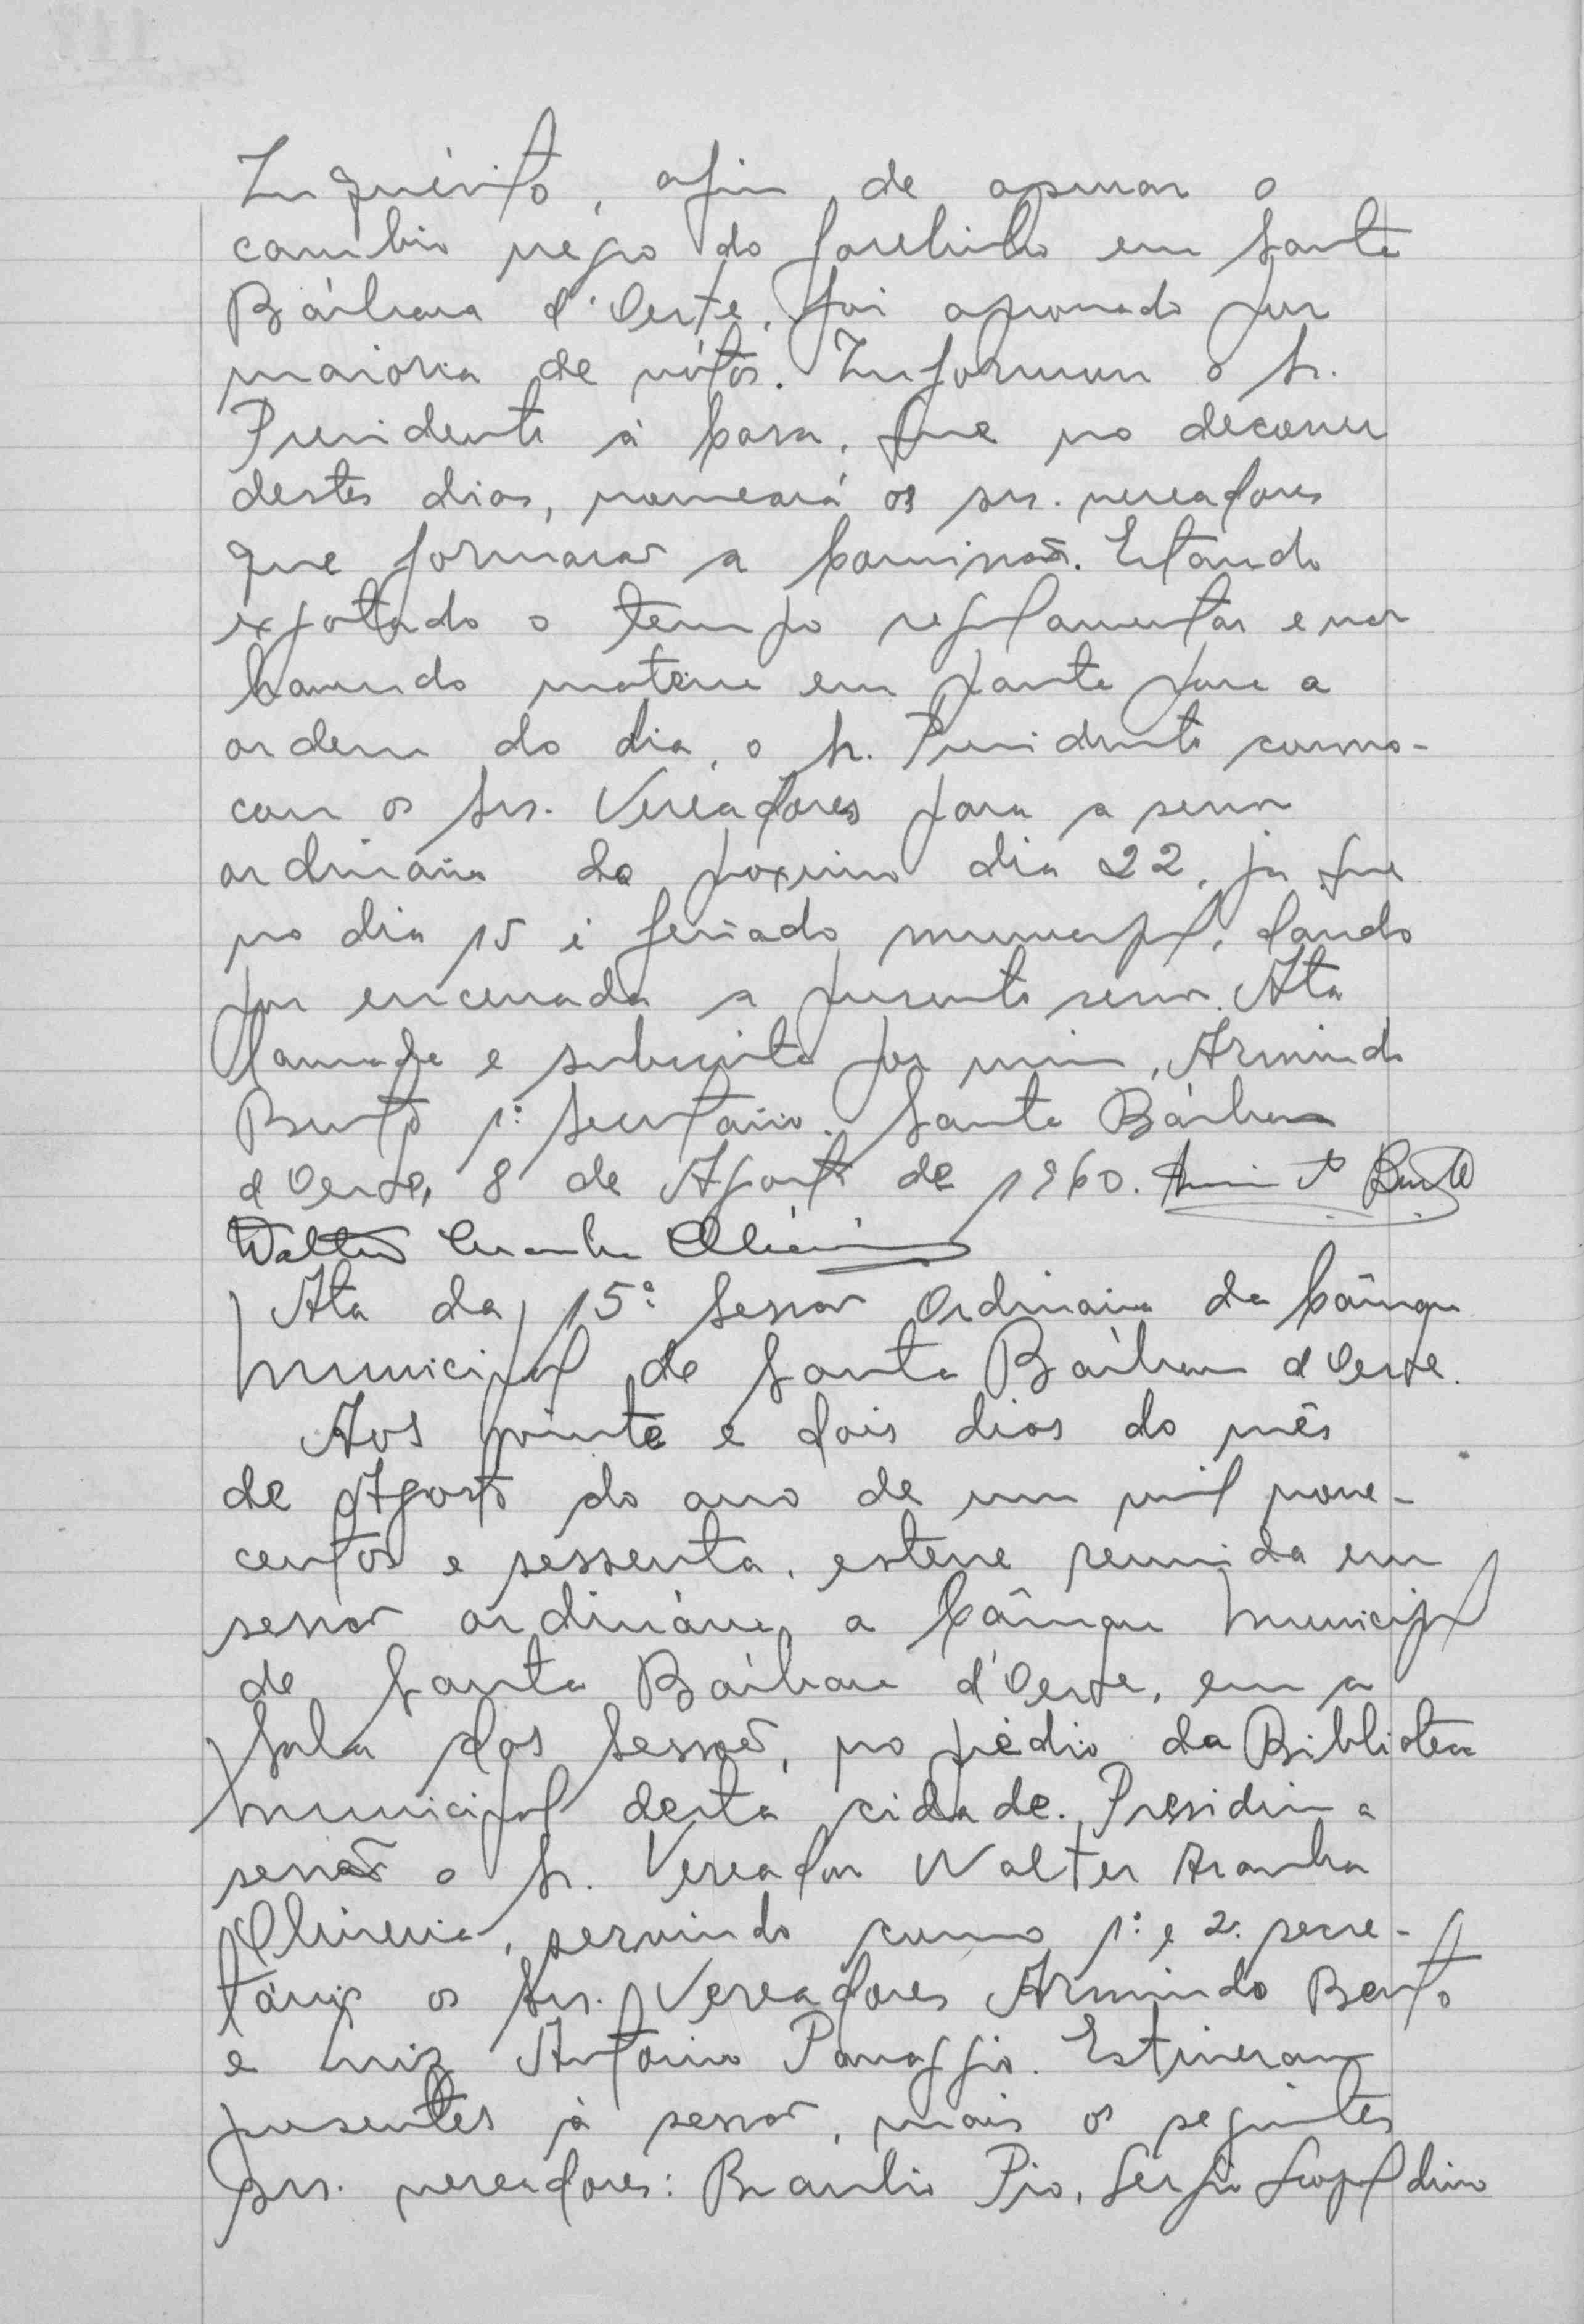 Inquérito, afim de apurar o
cambio negro do farelinho em Santa
Bárbara d'Oeste, foi aprovado por
maioria de vótos. Informou o Sr.
Presidente à Casa, que no decorrer
destes dias, nomeará os srs. vereadores
que formarão a Comissão. Estando
exgotado o tempo reglamentar e não
havendo materia em pauta para a
ordem do dia, o Sr. Presidente convo-
cou os Srs. Vereadores para a sessão
ordinária do proximo dia 22, já que
no dia 15 é feriado municipal, dando
por encerrada a presente sessão. Ata
lavrada e subscrita por mim, Armindo
Bento 1º Secretário. Santa Bárbara
d'Oeste, 8 de Agosto de 1960. Armindo Bento
Walter Aranha Oliveira
Ata da 15ª Sessão Ordinaria da Câmara
Municipal de Santa Bárbara d'Oeste.
Aos vinte e dois dias do mês
de Agosto do ano de um mil nove-
centos e sessenta, esteve reunida em
sessão ordinária a Câmara Municipal
de Santa Bárbara d'Oeste, em a
Sala das Sessões, no prédio da Biblioteca
Municipal desta cidade. Presidiu a
sessão o Sr. Vereador Walter Aranha
Oliveira, servindo como 1º e 2º secre-
tários os Srs. Vereadores Armindo Bento
e Luiz Antônio Panaggio. Estiveram
presentes à sessão, mais os seguintes
srs. vereadores: Braulio Pio, Sergio Leopoldino